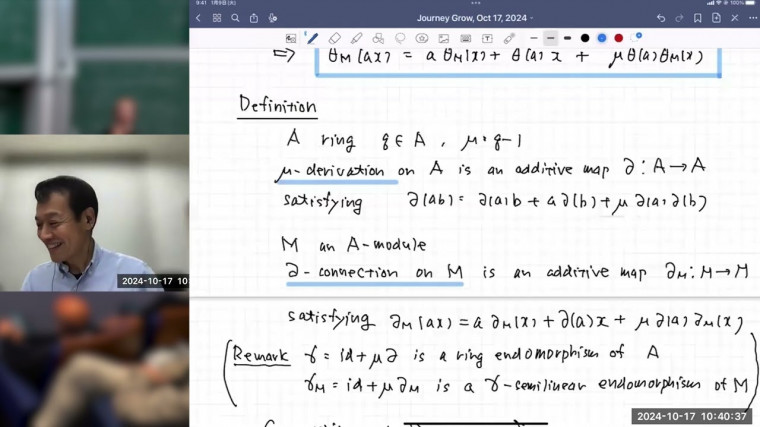 9:41 1月9日(火)
100%
Journey Grow, Oct 17, 2024
⇔ θ_M(ax) = a θ_M(x) + θ(a) x + μθ(a)θ_M(x)
Definition
A ring q∈A, μ=q-1
μ-derivation on A is an additive map ∂: A→A
satisfying ∂(ab) = ∂(a)b + a∂(b) + μ∂(a)∂(b)
M an A-module
∂-connection on M is an additive map ∂_M: M→M
satisfying ∂_M(ax) = a∂_M(x) + ∂(a)x + μ∂(a)∂_M(x)
(Remark γ = id + μ∂ is a ring endomorphism of A
γ_M = id + μ∂_M is a γ-semilinear endomorphism of M)
2024-10-17 10:
2024-10-17 10:40:37